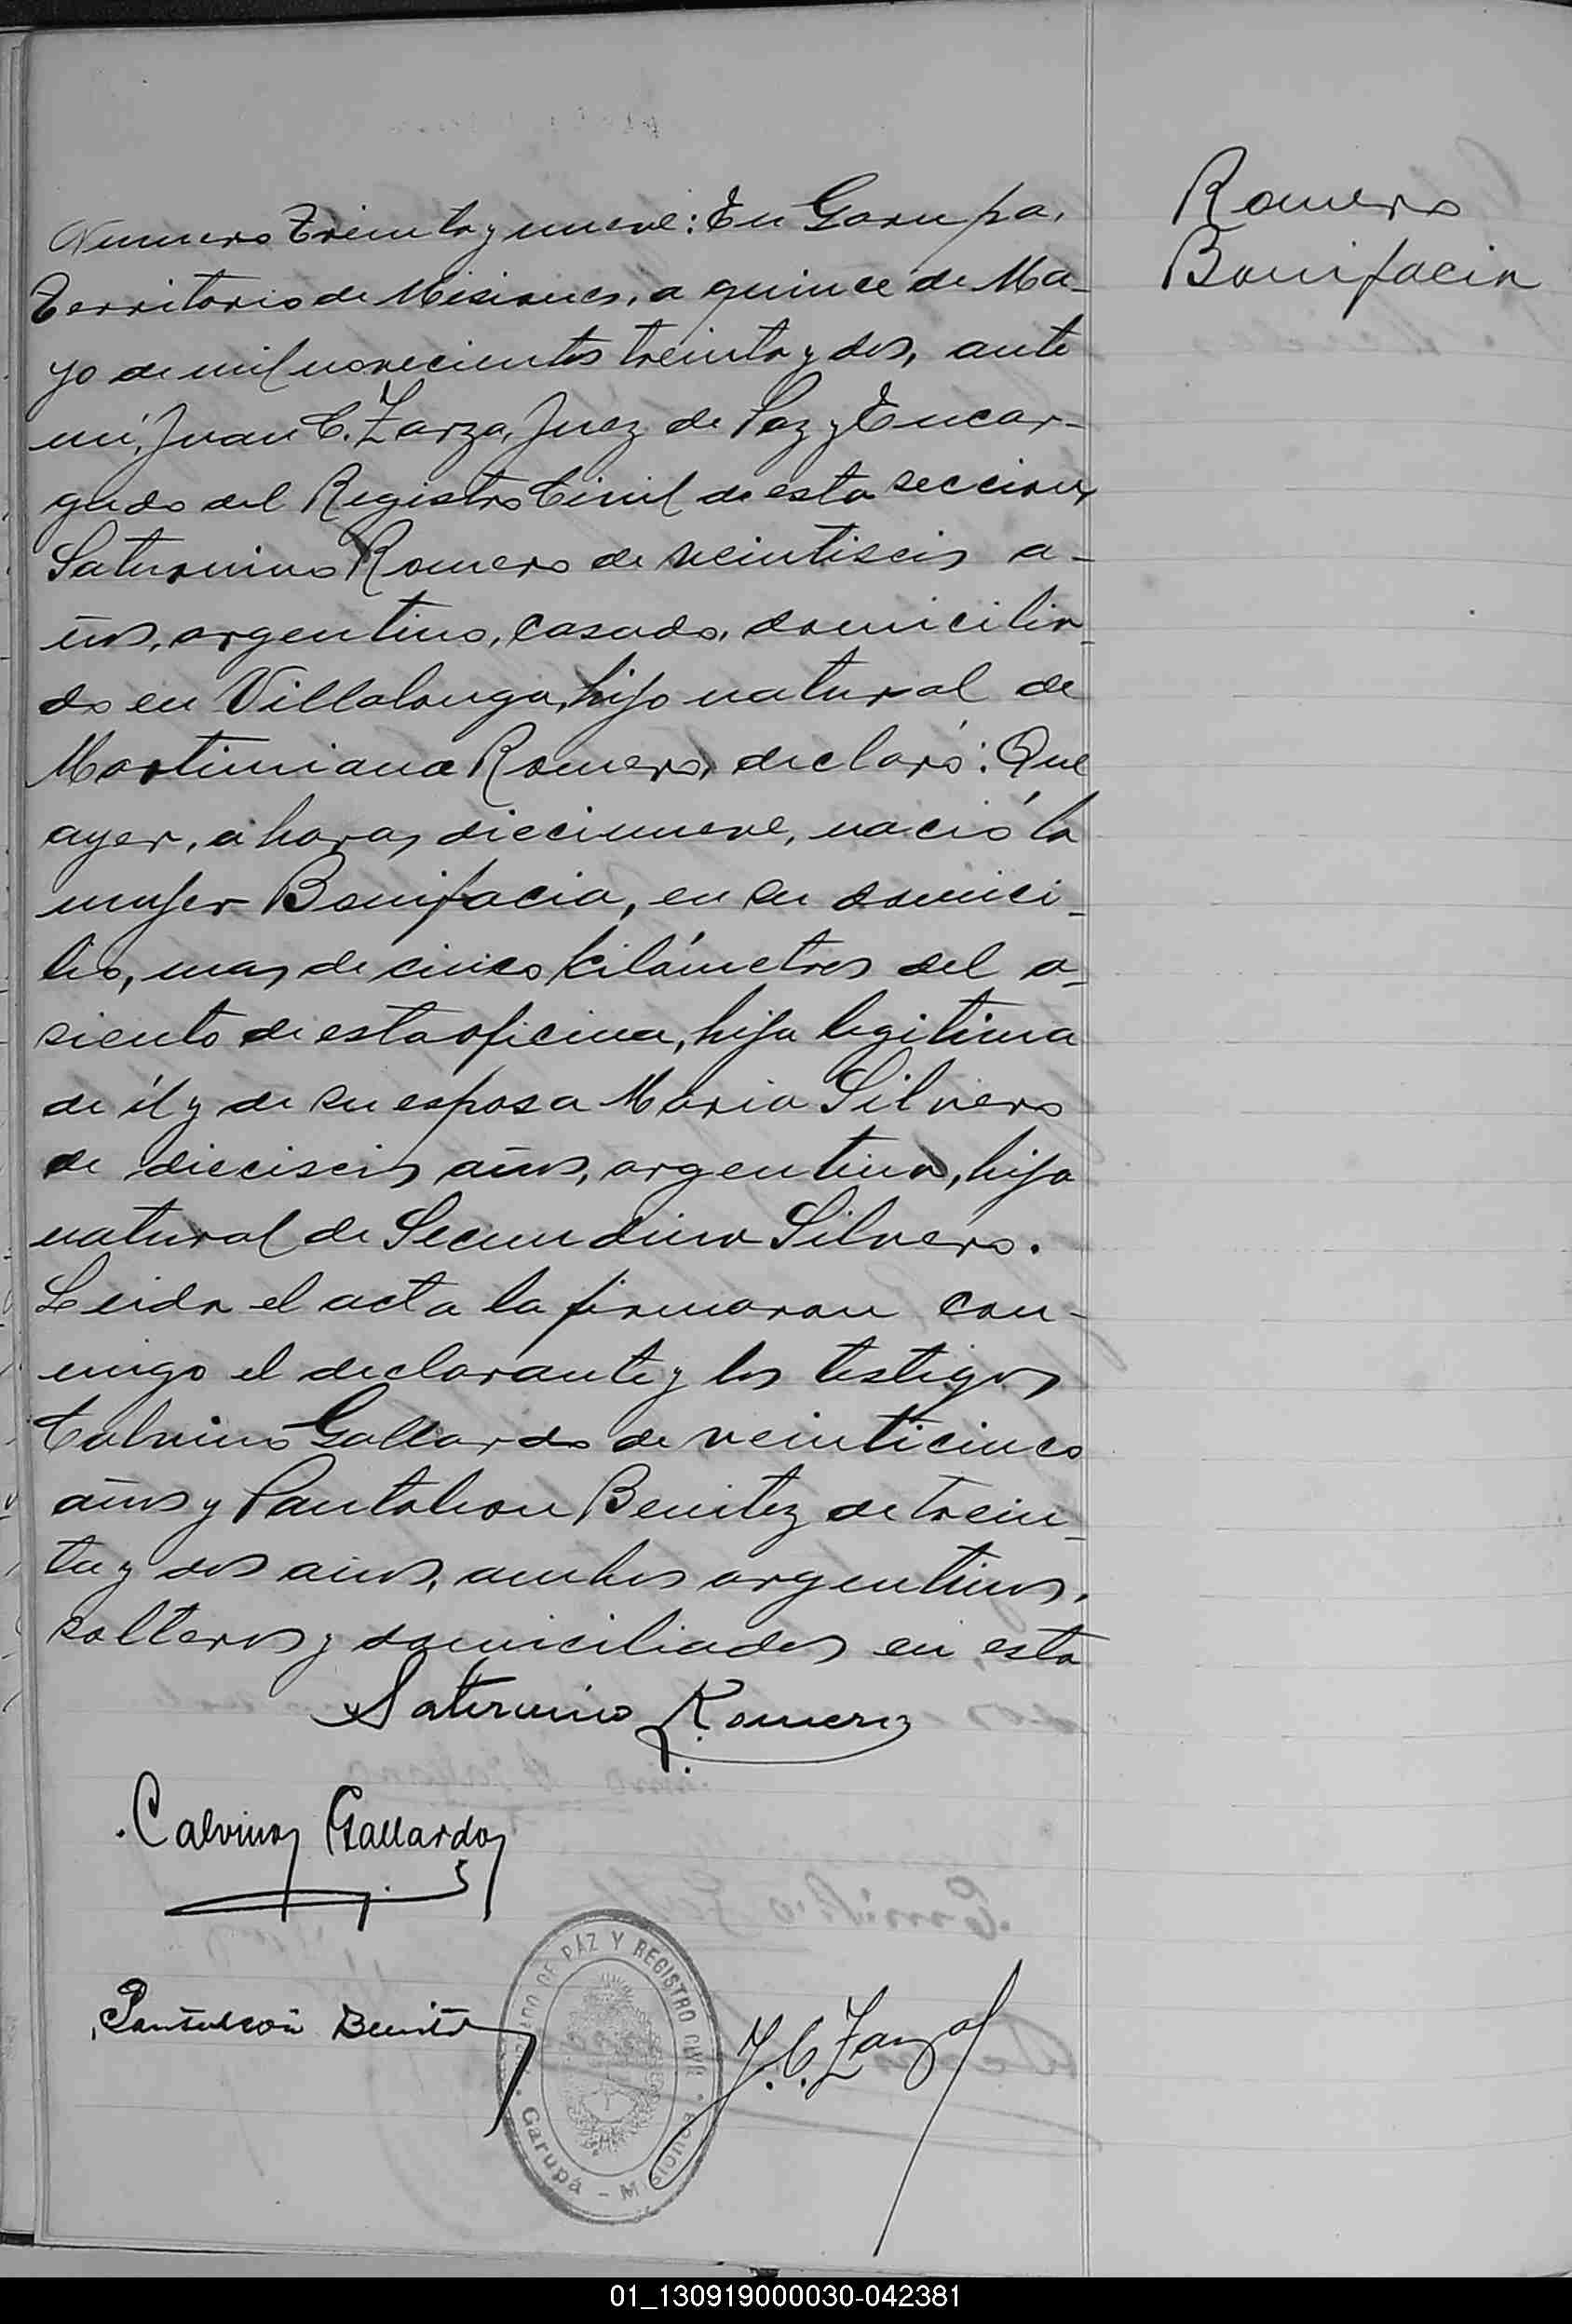 Romero
Bonifacia
Numero Treinta y nueve: En Garupa,
Territorio de Misiones, a quince de Ma-
yo de mil novecientos treinta y dos, ante
mi, Juan C. Zarza, Juez de Paz y Encar-
gado del Registro Civil de esta seccion,
Saturnino Romero de veintiseis a-
ños, argentino, casado, domicilia-
do en Villalonga, hijo natural de
Martiniana Romero, declaró: Que
ayer, a horas diecinueve, nació la
mujer Bonifacia, en su domici-
lio, mas de cinco kilómetros del a-
siento de esta oficina, hija legitima
de él y de su esposa Maria Silvero
de dieciseis años, argentina, hija
natural de Secundina Silvero.
Leida el acta la firmaron con-
migo el declarante y los testigos
Calvino Gallardo de veinticinco
años y Pantaleon Benitez de trein-
ta y dos años, ambos argentinos,
solteros y domiciliados en esta
Saturnino Romero
Calvino Gallardo
Pantaleon Benitez
J. C. Zarza
DO DE PAZ Y REGISTRO CIVIL
Garupá - Misiones
01_130919000030-042381